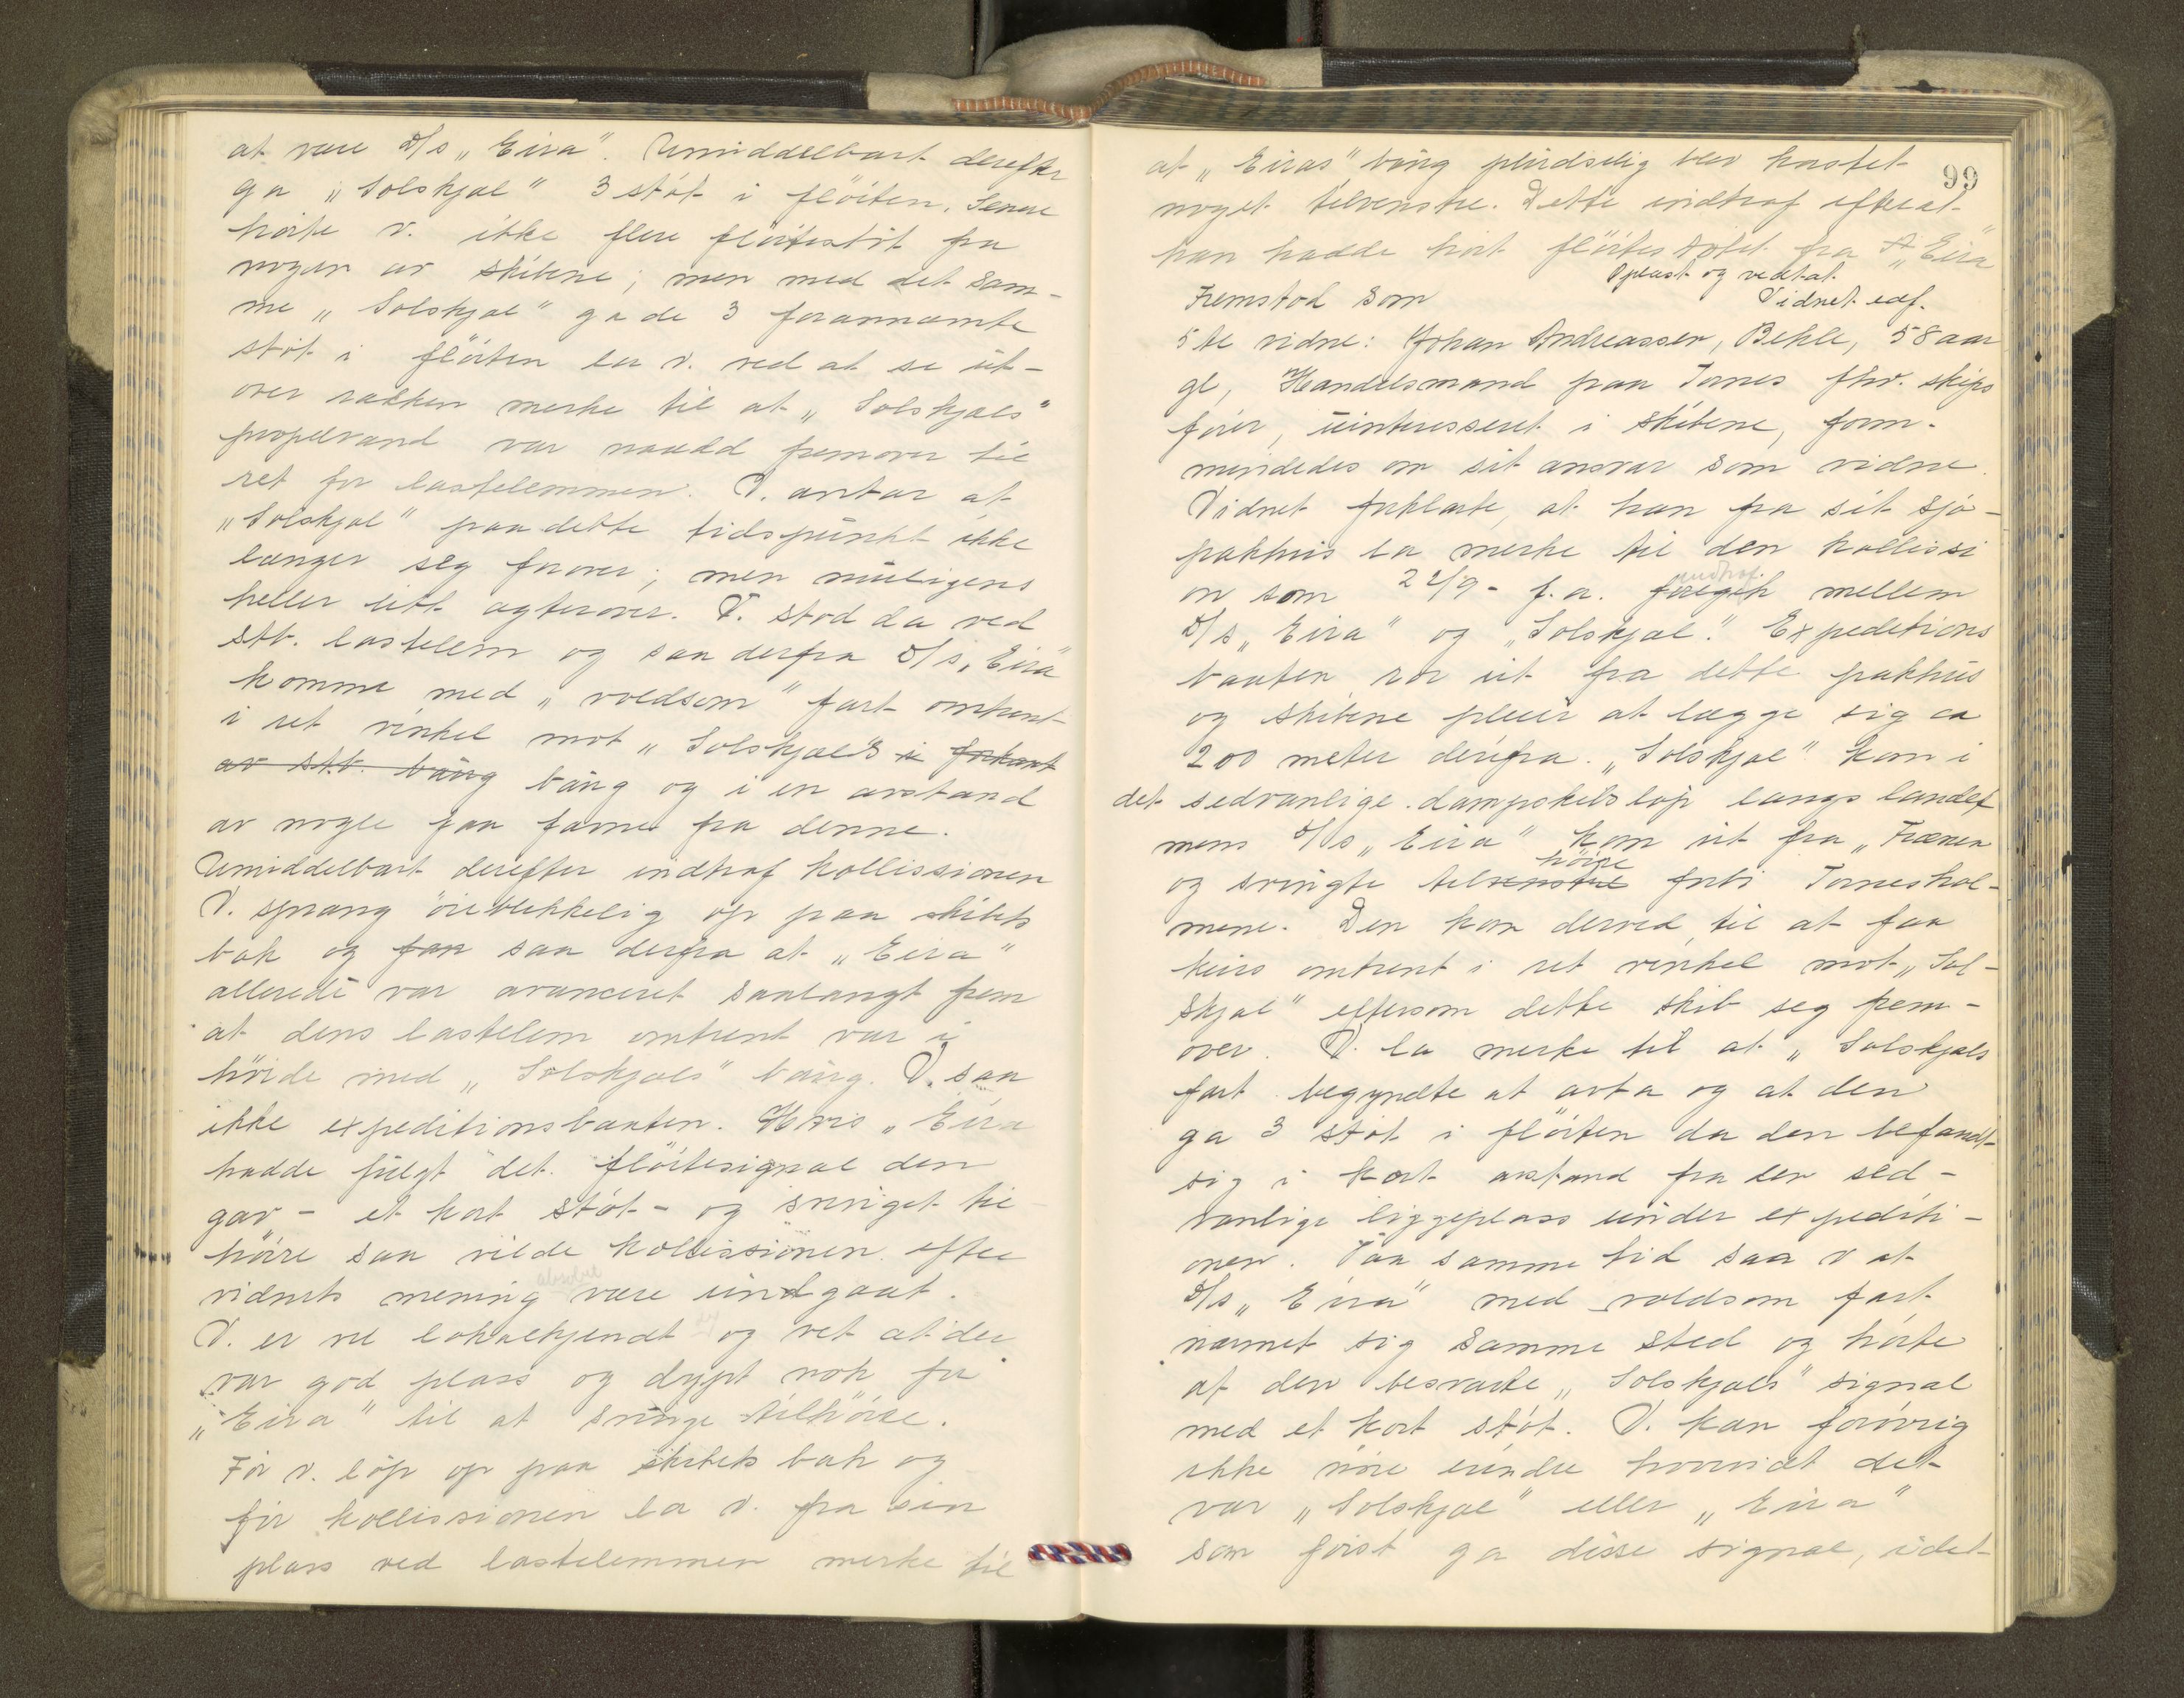 at være D/s „Eira". Umiddelbart derefter
ga „Solskjæl" 3 støt i fløiten. Senere
hørte v. ikke flere fløitestøt fra
nogen av skibene; men med det sam-
me „Solskjæl" ga de 3 forannævnte
støt i fløiten la v. ved at se ut-
over rækken merke til at „Solskjæls"
propelvand var naadd fremover til
ret for lastelemmen. V. antar at
„Solskjæl" paa dette tidspunkt ikke
længer seg forover; men muligens
heller litt agterover. V. stod da ved
stb. lastelem og saa derfra D/s „Eira"
komme med „voldsom" fart omtrent
i ret vinkel mot „Solskjæl's i forkant
av stb. baug baug og i en avstand
av nogle faa favner fra denne.
Umiddelbart derefter indtraf kollissionen
V. sprang øieblikkelig op paa skibets
bak og fan saa derfra at „Eira"
allerede var avanceret saalangt frem
at dens lastelem omtrent var i
høide med „Solskjæls" baug. V. saa
ikke expeditionsbaaten. Hvis „Eira
hadde fulgt det fløitesignal den
gav - et kort støt - og svinget til
høire saa vilde kollissionen efter
vidnets mening absolut være undgaat.
V. er vel lokalkjendt og vet at der
var god plass og dypt nok for
„Eira" til at svinge tilhøire.
Før v. løp op paa skibets bak og
før kollissionen la v. fra sin
plass ved lastelemmen merke til
99
at „Eiras" baug pludselig blev kastet
noget tilvenstre. Dette indtraf efterat
han hadde hørt fløitestøtet fra „Eira"
Oplæst og vedtat.
Vidnet edf.
Fremstod som
5te vidne: Johan Andreassen, Bekle, 58 aar
gl, Handelsmand paa Tornes fhv. skips
fører, uinteresseret i skibene, form-
mindedes om sit ansvar som vidne.
Vidnet forklarte, at han fra sit sjø-
pakhus la merke til den kollissi
on som 22/9 - f.a. foregik indtraf mellem
D/s „Eira" og „Solskjæl". Expeditions
baaten ror ut fra dette pakhus
og skibene pleier at lægge sig ca
200 meter derifra. „Solskjæl" kom i
det sedvanlige dampskibsløp langs landet
mens D/s „Eira" kom ut fra „Frænen
og svingte tilvenstre høire forbi Torneshol-
mene. Den kom derved til at faa
kurs omtrent i ret vinkel mot „Sol-
skjæl" eftersom dette skib seg frem-
over. V. la merke til at „Solskjæls
fart begyndte at avta og at den
ga 3 støt i fløiten da den befandt
sig i kort avstand fra den sed-
vanlige liggeplass under expediti-
onen. Paa samme tid saa v at
D/s „Eira" med voldsom fart
nærmet sig samme sted og hørte
at den besvarte „Solskjæls" signal
med et kort støt. V. kan forøvrig
ikke nøie erindre hvorvidt det
var „Solskjæl" eller „Eira"
som først ga disse signal, idet